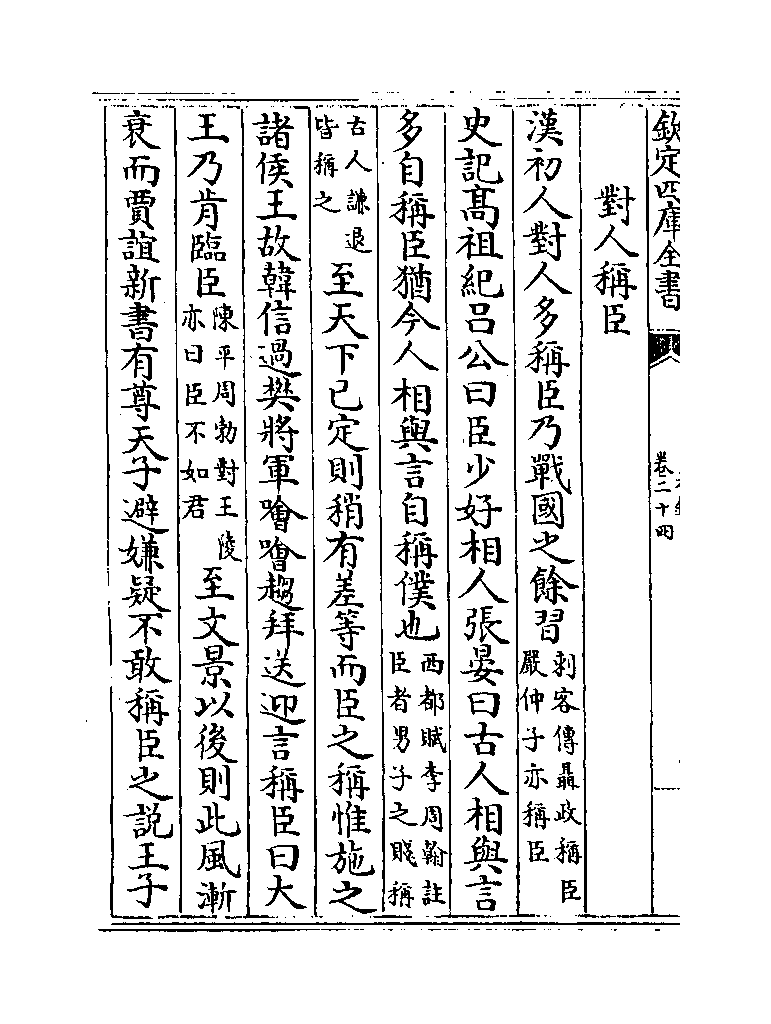 欽定四庫全書 卷二十四
對人稱臣
漢初人對人多稱臣乃戰國之餘習刺客傳聶政稱臣嚴仲子亦稱臣
史記髙祖紀吕公曰臣少好相人張晏曰古人相與言
多自稱臣猶今人相與言自稱僕也西都賦李周翰註臣者男子之賤稱
古人謙退皆稱之至天下已定則稍有差等而臣之稱惟施之
諸侯王故韓信過樊將軍噲噲趨拜送迎言稱臣曰大
王乃肯臨臣陳平周勃對王陵亦曰臣不如君至文景以後則此風漸
衰而賈誼新書有尊天子避嫌疑不敢稱臣之説王子